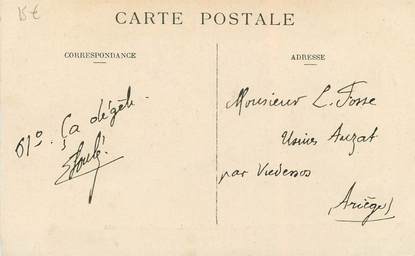 15 €
CARTE POSTALE
CORRESPONDANCE
ADRESSE
61° . Ça dégèle.
Monsieur L. Fosse
Usines Auzat
par Vicdessos
(Ariège)